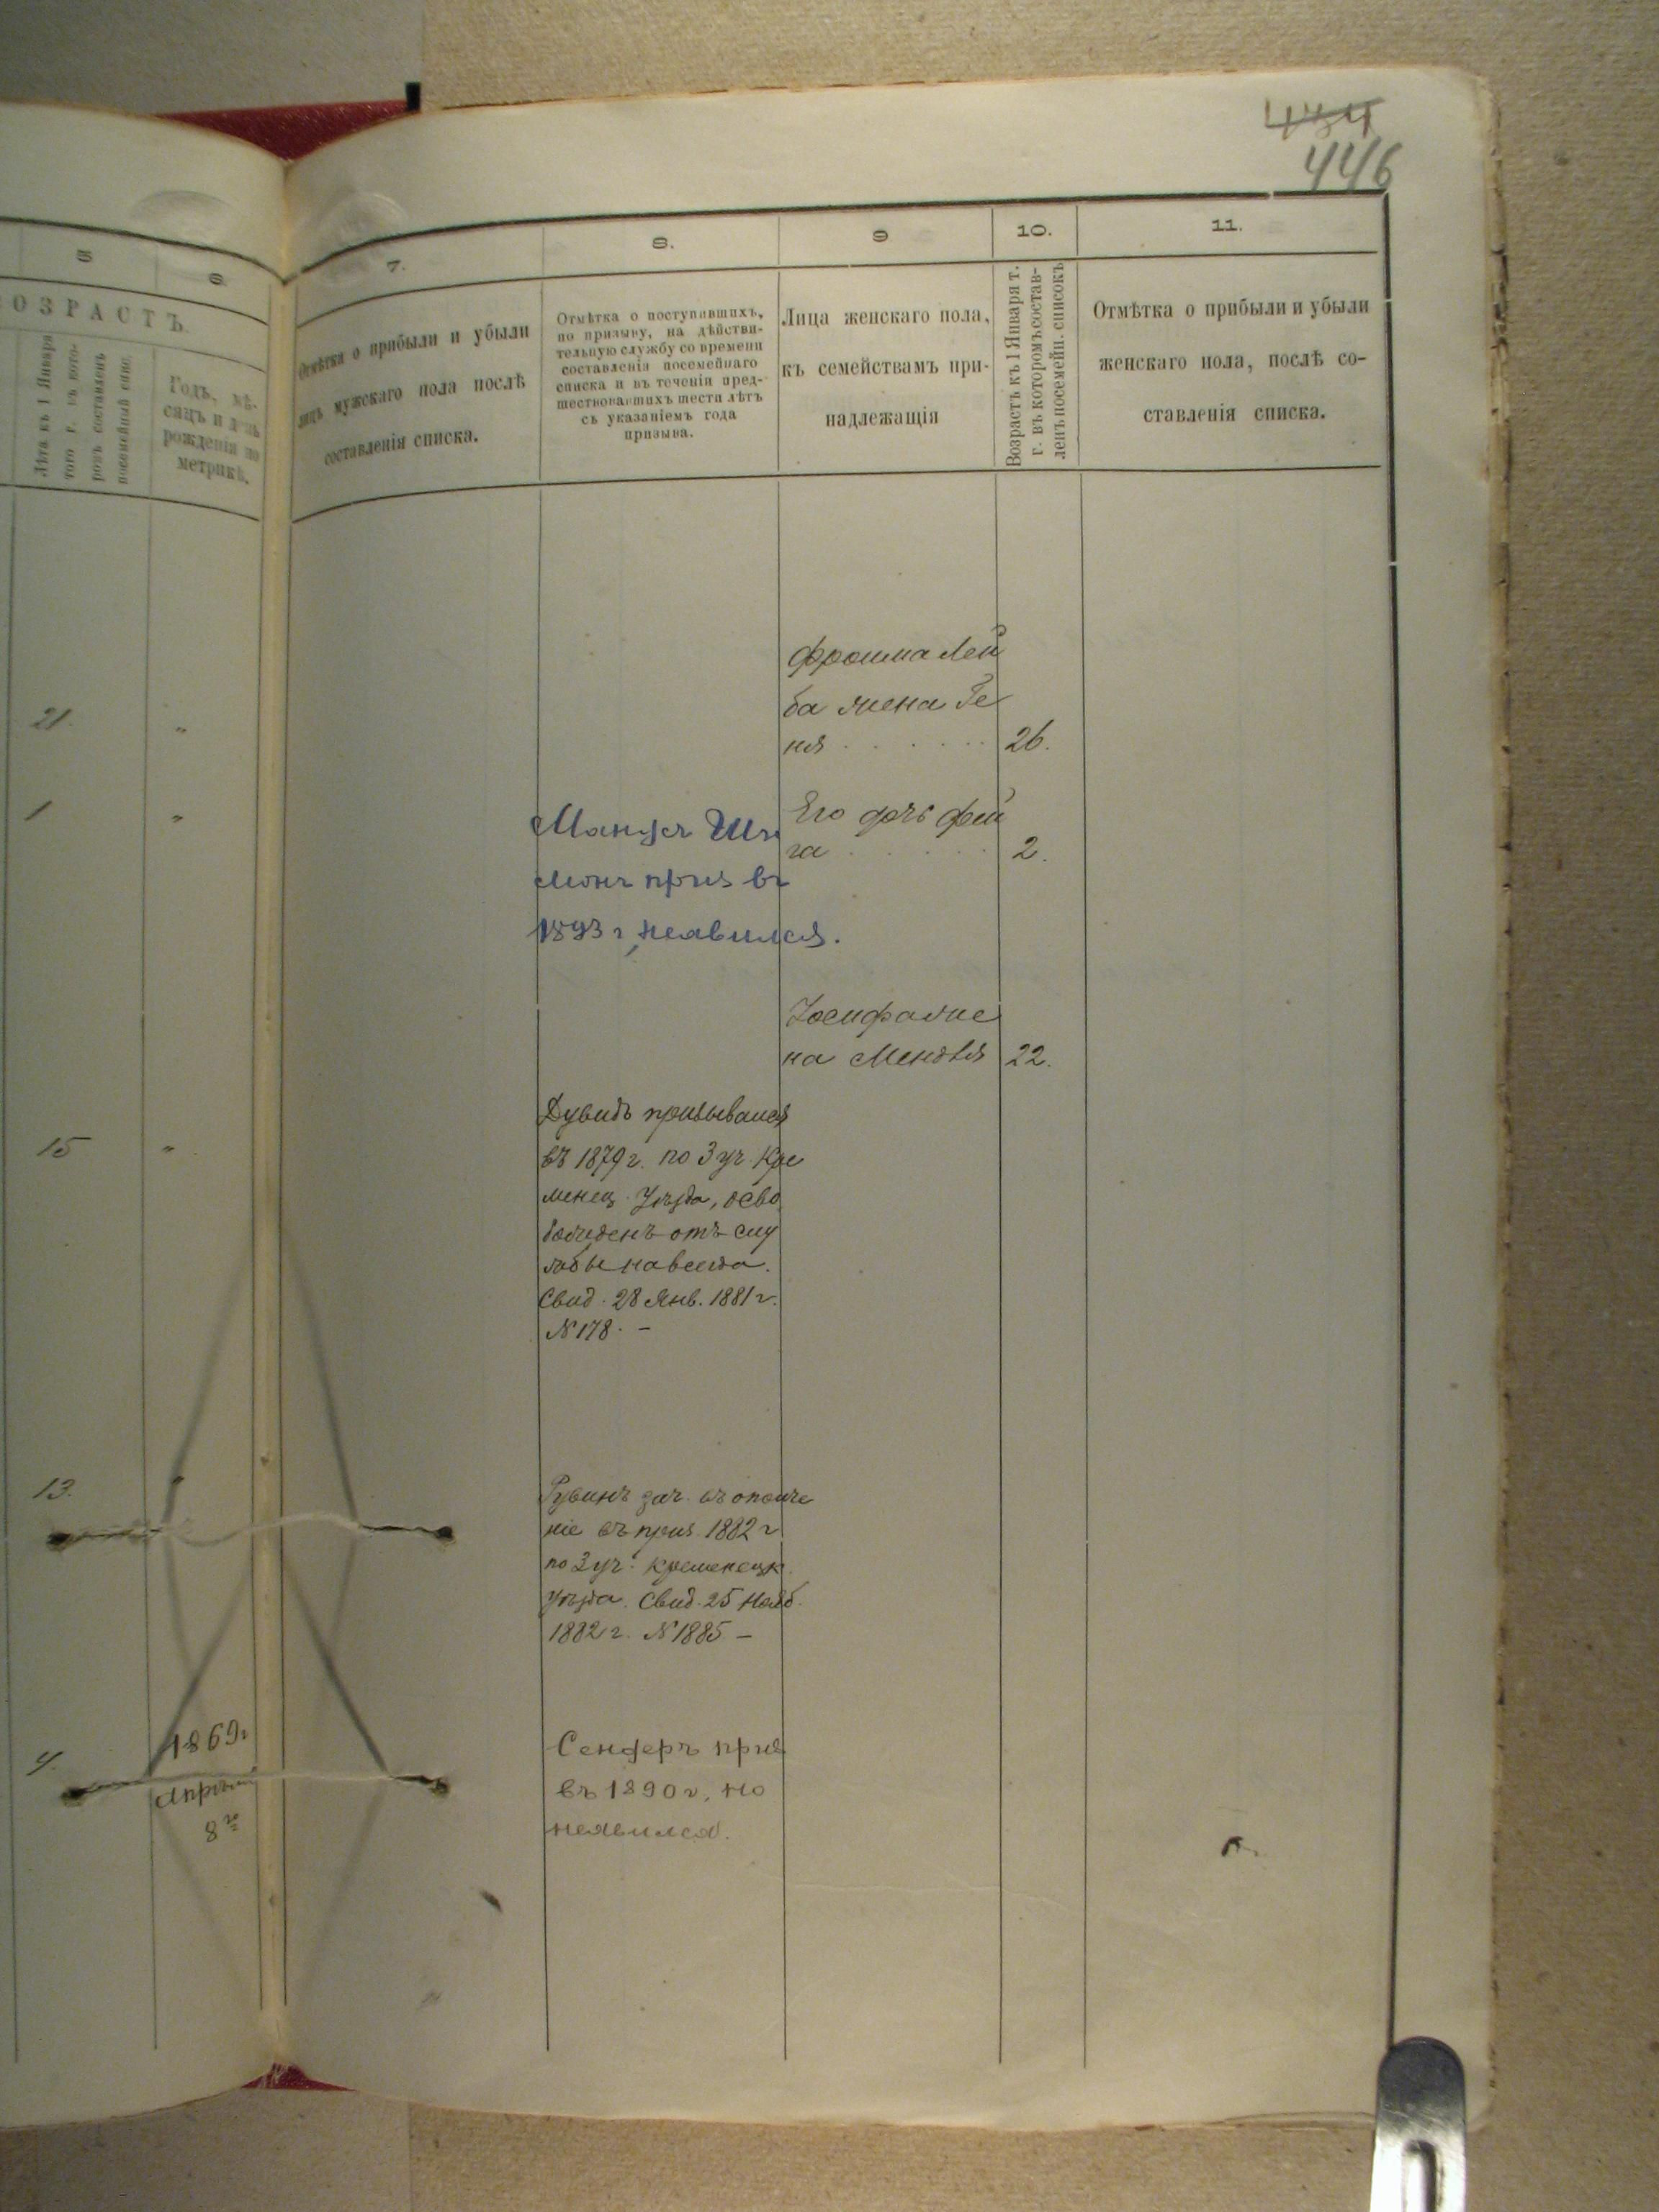 434
446
5
6
ВОЗРАСТЪ.
Лѣта къ 1 Января
того г. въ кото-
ромъ составленъ
посемейный спис.
Годъ, мѣ-
сяцъ и день
рожденія по
метрикѣ.
21.
"
1
"
15
"
13.
4.
1869 г
Апрѣля
8 го
7.
8.
9
10.
11.
Отмѣтка о прибыли и убыли
лицъ мужскаго пола послѣ
составленія списка.
Отмѣтка о поступившихъ,
по призыву, на дѣйстви-
тельную службу со времени
составленія посемейнаго
списка и въ теченіи пред-
шествовавшихъ шести лѣтъ
съ указаніемъ года
призыва.
Лица женскаго пола,
къ семействамъ при-
надлежащія
Возрастъ къ 1 Января т.
г. въ которомъ состав-
ленъ посемейн. списокъ
Отмѣтка о прибыли и убыли
женскаго пола, послѣ со-
ставленія списка.
Фроима Лей
ба жена Ге
ня . . . . . . 26.
Его дочь Фей
га . . . . . 2.
призв въ
1893 г, неявился.
Іосифа же
на Мендля 22.
Дувидъ призывался
въ 1879 г. по 3 уч. Кре
менец. Уѣзда, осво
божденъ отъ слу
жбы навсегда.
Свид. 28 Янв. 1881 г.
№ 178. –
Рувинъ зач. въ ополче
ніе въ приз. 1882 г
по 3 уч. Кременецк.
уѣзда. Свид. 25 Нояб.
1882 г. № 1885 –
Сендеръ призв
въ 1890 г, но
неявился.